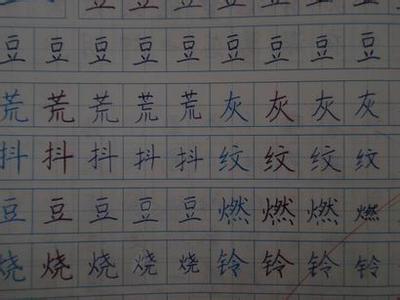 豆豆豆豆豆豆
豆豆豆豆豆豆豆豆
荒荒荒荒荒灰灰灰灰
抖抖抖抖抖纹纹纹纹
豆豆豆豆豆燃燃燃燃
烧烧烧烧烧铃铃铃铃